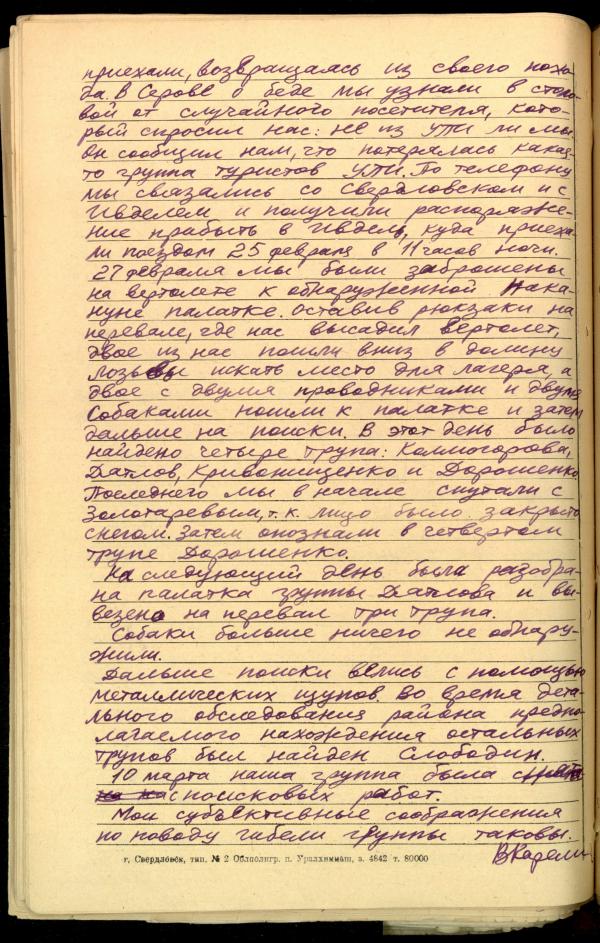 приехали, возвращаясь из своего похо-
да. В Серове о беде мы узнали в столо-
вой от случайного посетителя, кото-
рый спросил нас: не из УПИ ли мы.
Он сообщил нам, что потерялась какая-
то группа туристов УПИ. По телефону
мы связались со Свердловском и с
Ивделем и получили распоряже-
ние прибыть в Ивдель, куда приеха-
ли поездом 25 февраля в 11 часов ночи.
27 февраля мы были заброшены
на вертолете к обнаруженной нака-
нуне палатке. Оставив рюкзаки на
перевале, где нас высадил вертолет,
двое из нас пошли вниз в долину
Лозьвы искать место для лагеря, а
двое с двумя проводниками и двумя
собаками пошли к палатке и затем
дальше на поиски. В этот день было
найдено четыре трупа: Колмогорова,
Датлов, Кривонищенко и Дорошенко.
Последнего мы в начале спутали с
Золотаревым, т.к. лицо было закрыто
снегом. Затем опознали в четвертом
трупе Дорошенко.
На следующий день была разобра-
на палатка группы Датлова и вы-
везено на перевал три трупа.
Собаки больше ничего не обнару-
жили.
Дальше поиски велись с помощью
металлических щупов. Во время дета-
льного обследования района предпо-
лагаемого нахождения остальных
трупов был найден Слободин.
10 марта наша группа была снята
с поисковых работ.
Мои субъективные соображения
по поводу гибели группы таковы.
ВКарелин
г. Свердловск, тип. № 2 Облполигр. п. Уралхиммаш, з. 4842 т. 80000